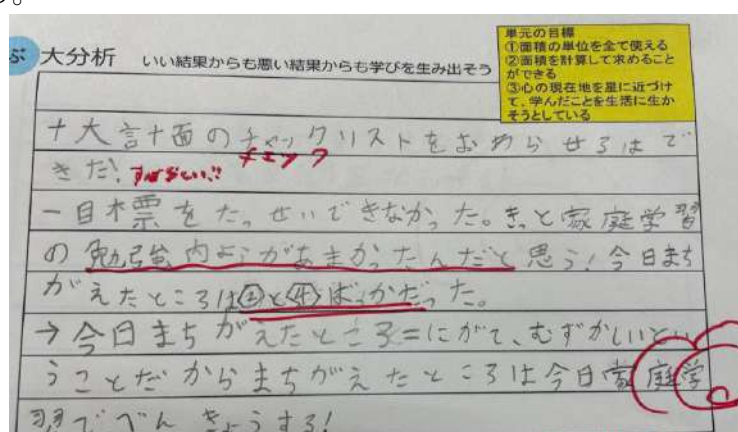 ぶ 大分析 いい結果からも悪い結果からも学びを生み出そう
単元の目標
①面積の単位を全て使える
②面積を計算して求めること
ができる
③心の現在地を星に近づけ
て、学んだことを生活に生か
そうとしている
+大計画のチャックリストをおわらせるはで
チェック
きた! すばらしい!!
-目標をたっせいできなかった。きっと家庭学習
の勉強内ようがあまかったんだと思う!今日まち
がえたところは②と④ばっかだった。
→今日まちがえたところ=にがて、むずかしいとい
うことだからまちがえたところは今日家庭学
習でべんきょうする!